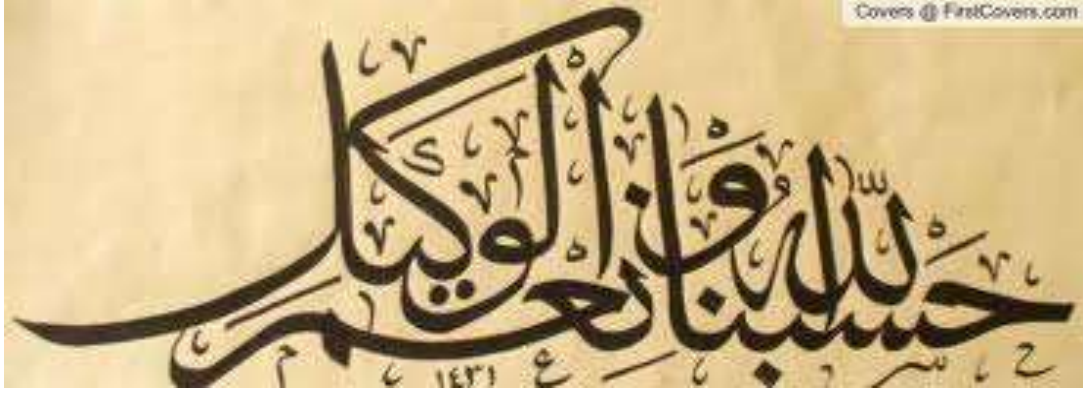 Covers @ FirstCovers.com
حسبنا الله ونعم الوكيل
١٤٣١